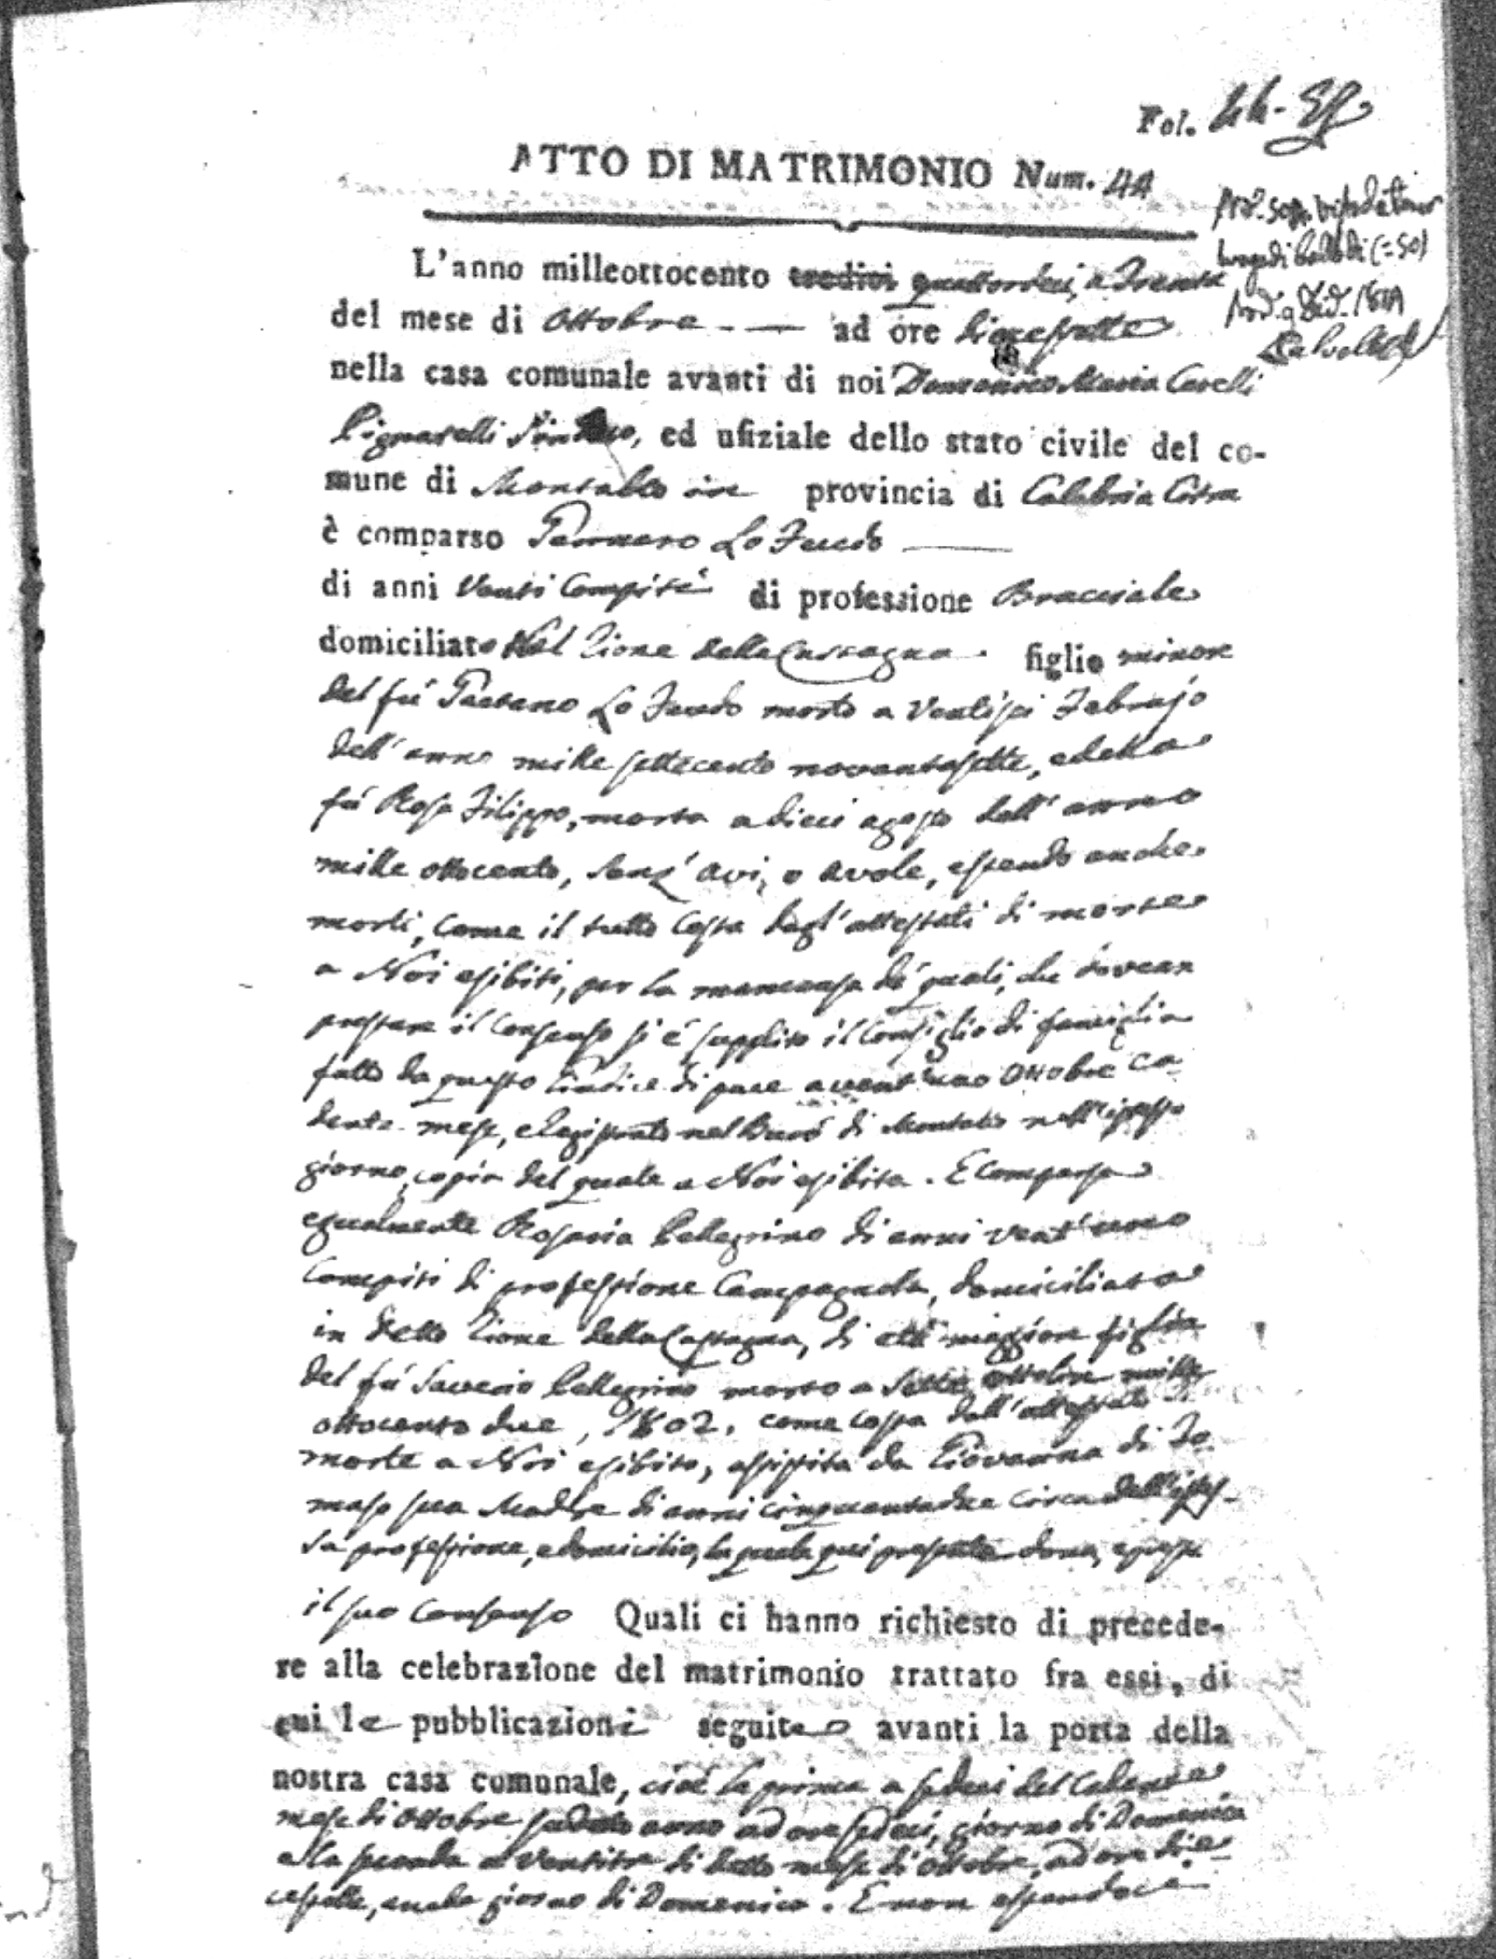 Fol. 44
ATTO DI MATRIMONIO Num. 44
L'anno milleottocento tredici quattordeci, a Trenta
del mese di Ottobre ad ore diecesette
nella casa comunale avanti di noi Domenico Maria Caselli
Pignatelli Sindaco, ed ufiziale dello stato civile del co-
mune di Montalto in provincia di Calabria Citra
è comparso Gennaro Lo Feudo
di anni Venti Compiti di professione Bracciale
domiciliato Nel Rione della Castagna figlio minore
del fù Gaetano Lo Feudo morto a Ventisei Febrajo
dell'anno mille settecento novantasette, e della
fù Rosa Filippo, morta a dieci agosto dell'anno
mille ottocento, senz'avi, o avole, essendo anche
morti, come il tutto costa dagl'attestati di morte
a Noi esibiti, per la mancanza de' quali, che dovean
prestare il consenso si è supplito il Consiglio di famiglia
fatto da questo Giudice di pace a vent'uno Ottobre ca-
dente mese, e Registrato nel Burò di Montalto nell'istesso
giorno, copia del quale a Noi esibita. E comparsa
egualmente Rosaria Pellegrino di anni vent'uno
Compiti di professione Campagnola, domiciliata
in detto Rione della Castagna, di età maggiore figlia
del fù Saverio Pellegrino morto a Sette Ottobre mille
ottocento due, 1802, come costa dall'attestato di
morte a Noi esibito, assistita da Giovanna di To-
maso sua Madre di anni cinquantadue circa dell'istes-
sa professione, e domicilio, la quale qui presente dona, e presta
il suo consenso Quali ci hanno richiesto di precede-
re alla celebrazione del matrimonio trattato fra essi, di
cui le pubblicazioni seguite avanti la porta della
nostra casa comunale, cioè la prima a sedeci del Cadente
mese di Ottobre sudetto anno ad ore sedeci, giorno di Domenica
e la seconda a Ventitre di detto mese di Ottobre, ad ore die-
cesette, anche giorno di Domenica. E non essendoci